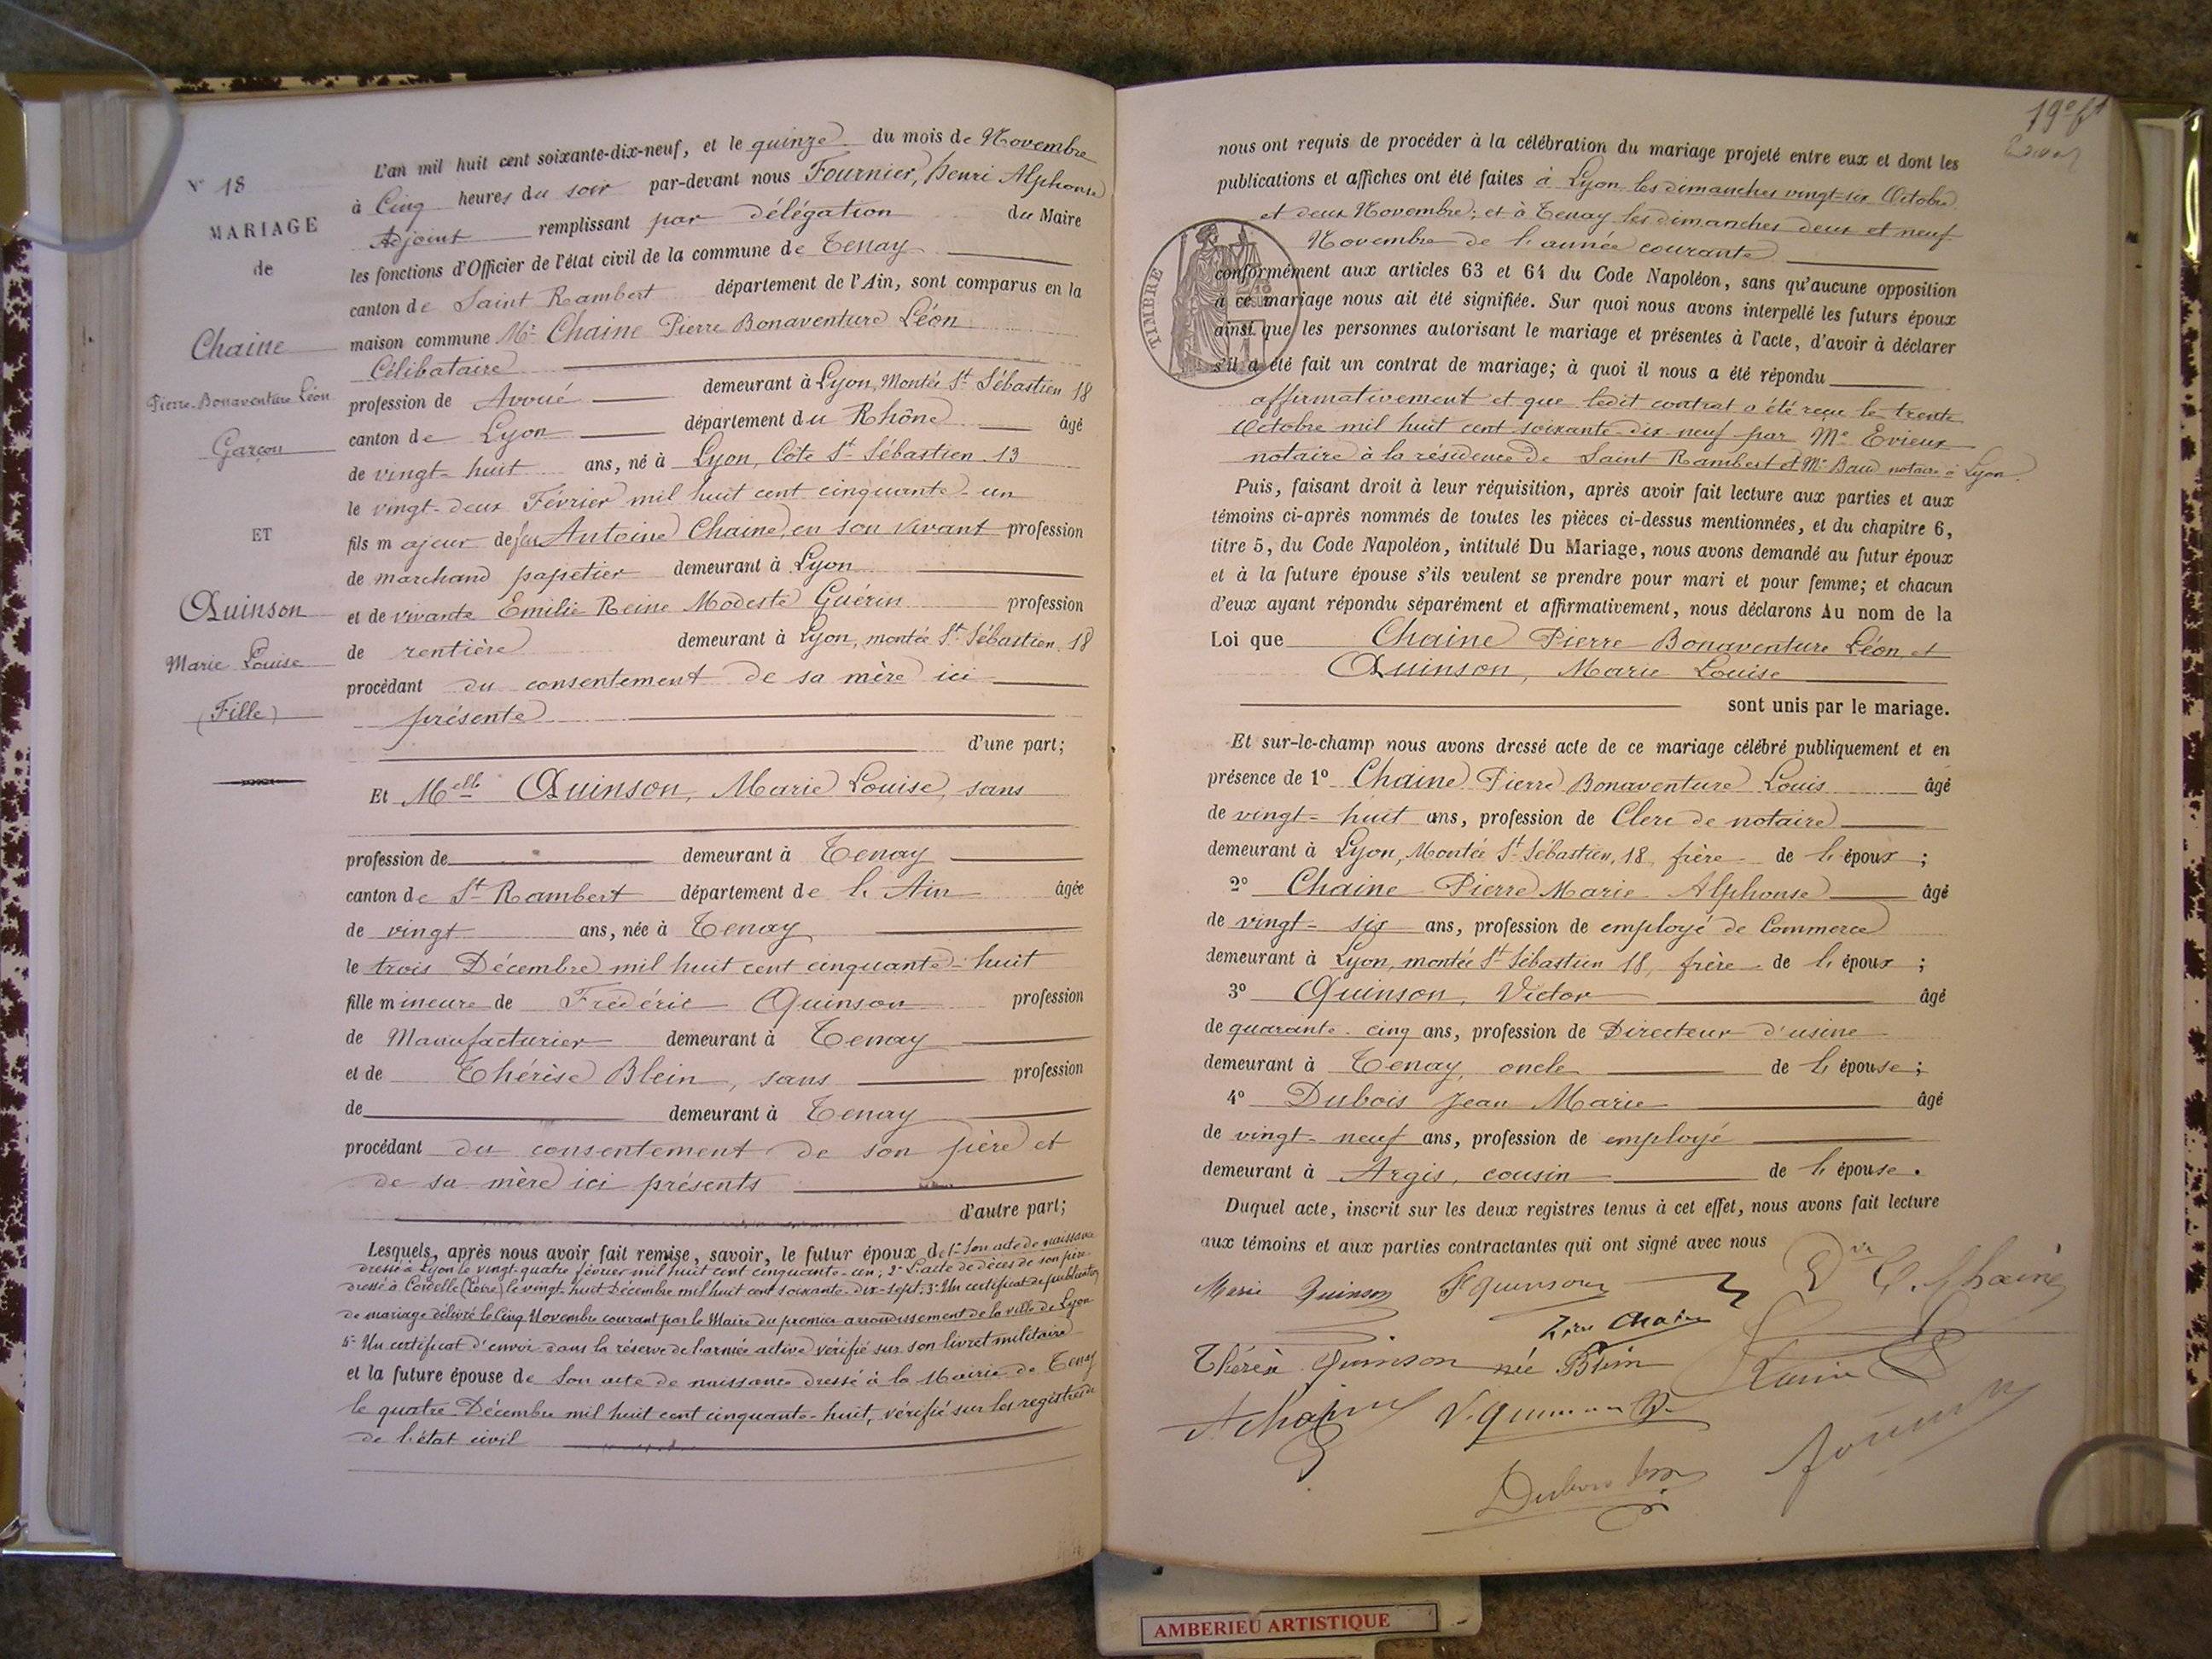 N° 18
MARIAGE
de
Chaine
Pierre-Bonaventure Léon
Garçon
ET
Quinson
Marie Louise
(Fille)
L'an mil huit cent soixante-dix-neuf, et le quinze du mois de Novembre
à Cinq heures du soir par-devant nous Fournier, Henri Alphonse
Adjoint remplissant par délégation du Maire
les fonctions d'Officier de l'état civil de la commune de Tenay
canton de Saint Rambert département de l'Ain, sont comparus en la
maison commune Mr Chaine Pierre Bonaventure Léon
Célibataire
profession de Avoué demeurant à Lyon, Montée St Sébastien 18
canton de Lyon département du Rhône âgé
de vingt-huit ans, né à Lyon, Côte St Sébastien 13
le vingt-deux Février mil huit cent cinquante-un
fils majeur de feu Antoine Chaine, en son vivant profession
de marchand papetier demeurant à Lyon
et de vivante Emilie Reine Modeste Guérin profession
de rentière demeurant à Lyon, montée St Sébastien 18
procédant du consentement de sa mère ici
présente
d'une part;
Et Melle Quinson, Marie Louise, sans
profession de demeurant à Tenay
canton de St Rambert département de l'Ain âgée
de vingt ans, née à Tenay
le trois Décembre mil huit cent cinquante-huit
fille mineure de Frédéric Quinson profession
de Manufacturier demeurant à Tenay
et de Thérèse Blein, sans profession
de demeurant à Tenay
procédant du consentement de son père et
de sa mère ici présents
d'autre part;
Lesquels, après nous avoir fait remise, savoir, le futur époux de 1° Son acte de naissance
dressé à Lyon le vingt-quatre février mil huit cent cinquante-un; 2° L'acte de décès de son père
dressé à Cordelle (Loire) le vingt-huit Décembre mil huit cent soixante-dix-sept; 3° Un certificat de publication
de mariage délivré le Cinq Novembre courant par le Maire du premier arrondissement de la ville de Lyon
Un certificat d'envoi dans la réserve de l'armée active vérifié sur son livret militaire
et la future épouse de Son acte de naissance dressé à la Mairie de Tenay
le quatre Décembre mil huit cent cinquante-huit, vérifié sur les registres de
de l'état civil
19e ft
nous ont requis de procéder à la célébration du mariage projeté entre eux et dont les
publications et affiches ont été faites à Lyon les dimanches vingt-six Octobre
et deux Novembre; et à Tenay les dimanches deux et neuf
Novembre de l'année courante
TIMBRE
conformément aux articles 63 et 64 du Code Napoléon, sans qu'aucune opposition
à ce mariage nous ait été signifiée. Sur quoi nous avons interpellé les futurs époux
ainsi que les personnes autorisant le mariage et présentes à l'acte, d'avoir à déclarer
s'il a été fait un contrat de mariage; à quoi il nous a été répondu
affirmativement et que ledit contrat a été reçu le trente
Octobre mil huit cent soixante-dix-neuf par Me Evieux
notaire à la résidence de Saint Rambert et Me Baud notaire à Lyon.
Puis, faisant droit à leur réquisition, après avoir fait lecture aux parties et aux
témoins ci-après nommés de toutes les pièces ci-dessus mentionnées, et du chapitre 6,
titre 5, du Code Napoléon, intitulé Du Mariage, nous avons demandé au futur époux
et à la future épouse s'ils veulent se prendre pour mari et pour femme; et chacun
d'eux ayant répondu séparément et affirmativement, nous déclarons Au nom de la
Loi que Chaine Pierre Bonaventure Léon, et
Quinson, Marie Louise
sont unis par le mariage.
Et sur-le-champ nous avons dressé acte de ce mariage célébré publiquement et en
présence de 1° Chaine Pierre Bonaventure Louis âgé
de vingt-huit ans, profession de Clerc de notaire
demeurant à Lyon, Montée St Sébastien, 18, frère de l'époux;
2° Chaine Pierre Marie Alphonse âgé
de vingt-six ans, profession de employé de Commerce
demeurant à Lyon, montée St Sébastien 18, frère de l'époux;
3° Quinson, Victor âgé
de quarante-cinq ans, profession de Directeur d'usine
demeurant à Tenay, oncle de l'épouse;
4° Dubois Jean Marie âgé
de vingt-neuf ans, profession de employé
demeurant à Argis, cousin de l'épouse.
Duquel acte, inscrit sur les deux registres tenus à cet effet, nous avons fait lecture
aux témoins et aux parties contractantes qui ont signé avec nous
Marie Quinson F Quinson Dve C. Chaine
Chaine
Thérèse Quinson née Blein
A Chaine V. Quinson
Dubois
AMBERIEU ARTISTIQUE